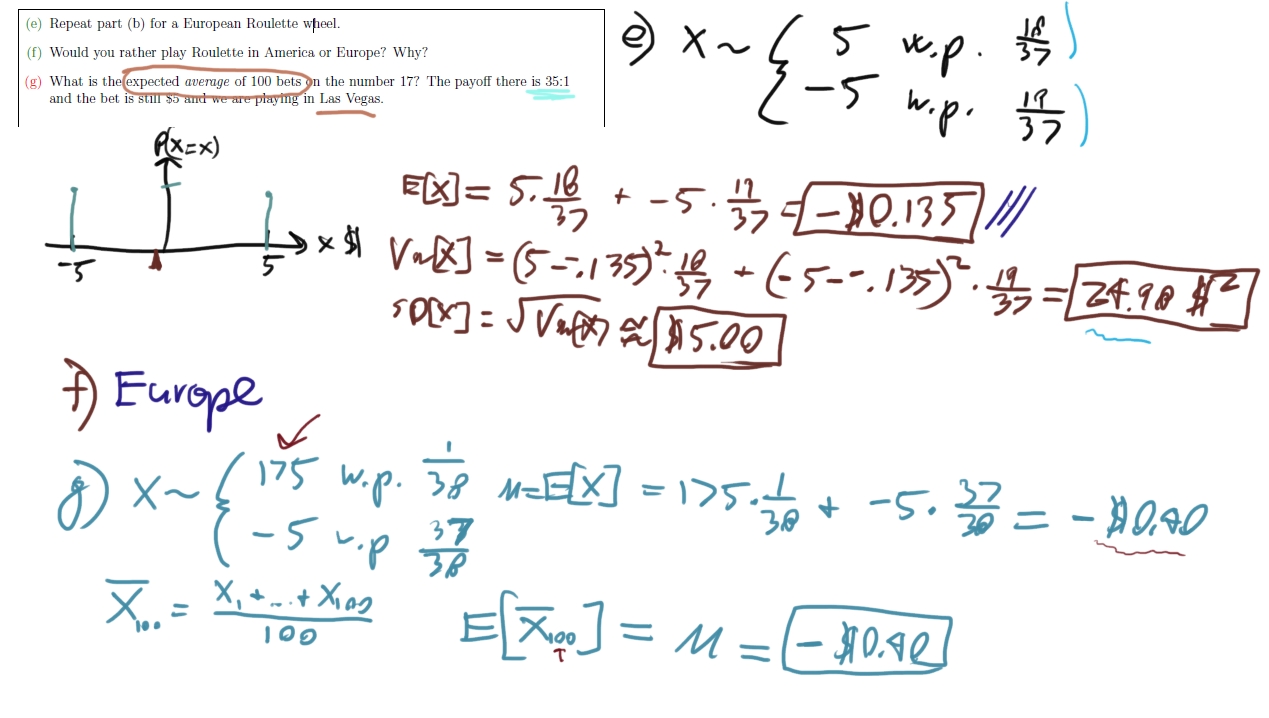 (e) Repeat part (b) for a European Roulette wheel.
(f) Would you rather play Roulette in America or Europe? Why?
(g) What is the expected average of 100 bets on the number 17? The payoff there is 35:1
and the bet is still $5 and we are playing in Las Vegas.
e) X ~ { 5 w.p. 18/37
-5 w.p. 19/37
P(X=x)
x $
-5 5
E[X] = 5 · 18/37 + -5 · 19/37 = -$0.135
Var[X] = (5 - -.135)² · 18/37 + (-5 - -.135)² · 19/37 = 24.98 $²
SD[X] = √Var[X] ≈ $5.00
f) Europe
g) X ~ { 175 w.p. 1/38
-5 w.p 37/38
μ = E[X] = 175 · 1/38 + -5 · 37/38 = -$0.40
X̄₁₀₀ = X₁ + ... + X₁₀₀ / 100
E[X̄₁₀₀] = μ = -$0.40